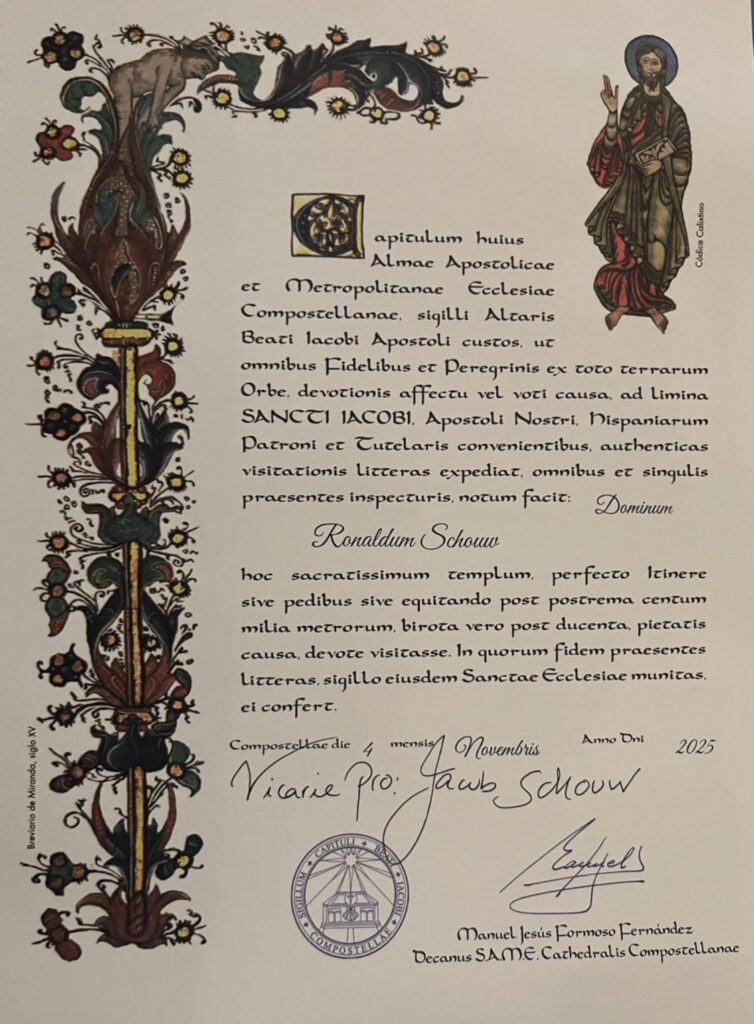 Códice Calixtino
Capitulum huius
Almae Apostolicae
et Metropolitanae Ecclesiae
Compostellanae, sigilli Altaris
Beati Iacobi Apostoli custos, ut
omnibus Fidelibus et Peregrinis ex toto terrarum
Orbe, devotionis affectu vel voti causa, ad limina
SANCTI IACOBI, Apostoli Nostri, Hispaniarum
Patroni et Tutelaris convenientibus, authenticas
visitationis litteras expediat, omnibus et singulis
praesentes inspecturis, notum facit: Dominum
Ronaldum Schouw
hoc sacratissimum templum, perfecto Itinere
sive pedibus sive equitando post postrema centum
milia metrorum, birota vero post ducenta, pietatis
causa, devote visitasse. In quorum fidem praesentes
litteras, sigillo eiusdem Sanctae Ecclesiae munitas,
ei confert.
Compostellae die 4 mensis Novembris Anno Dni 2025
Vicarie Pro: Jacob Schouw
SIGILLUM CAPITULI BEATI IACOBI COMPOSTELLAE
Manuel Jesús Formoso Fernández
Decanus S.A.M.E. Cathedralis Compostellanae
Breviario de Miranda, siglo XV